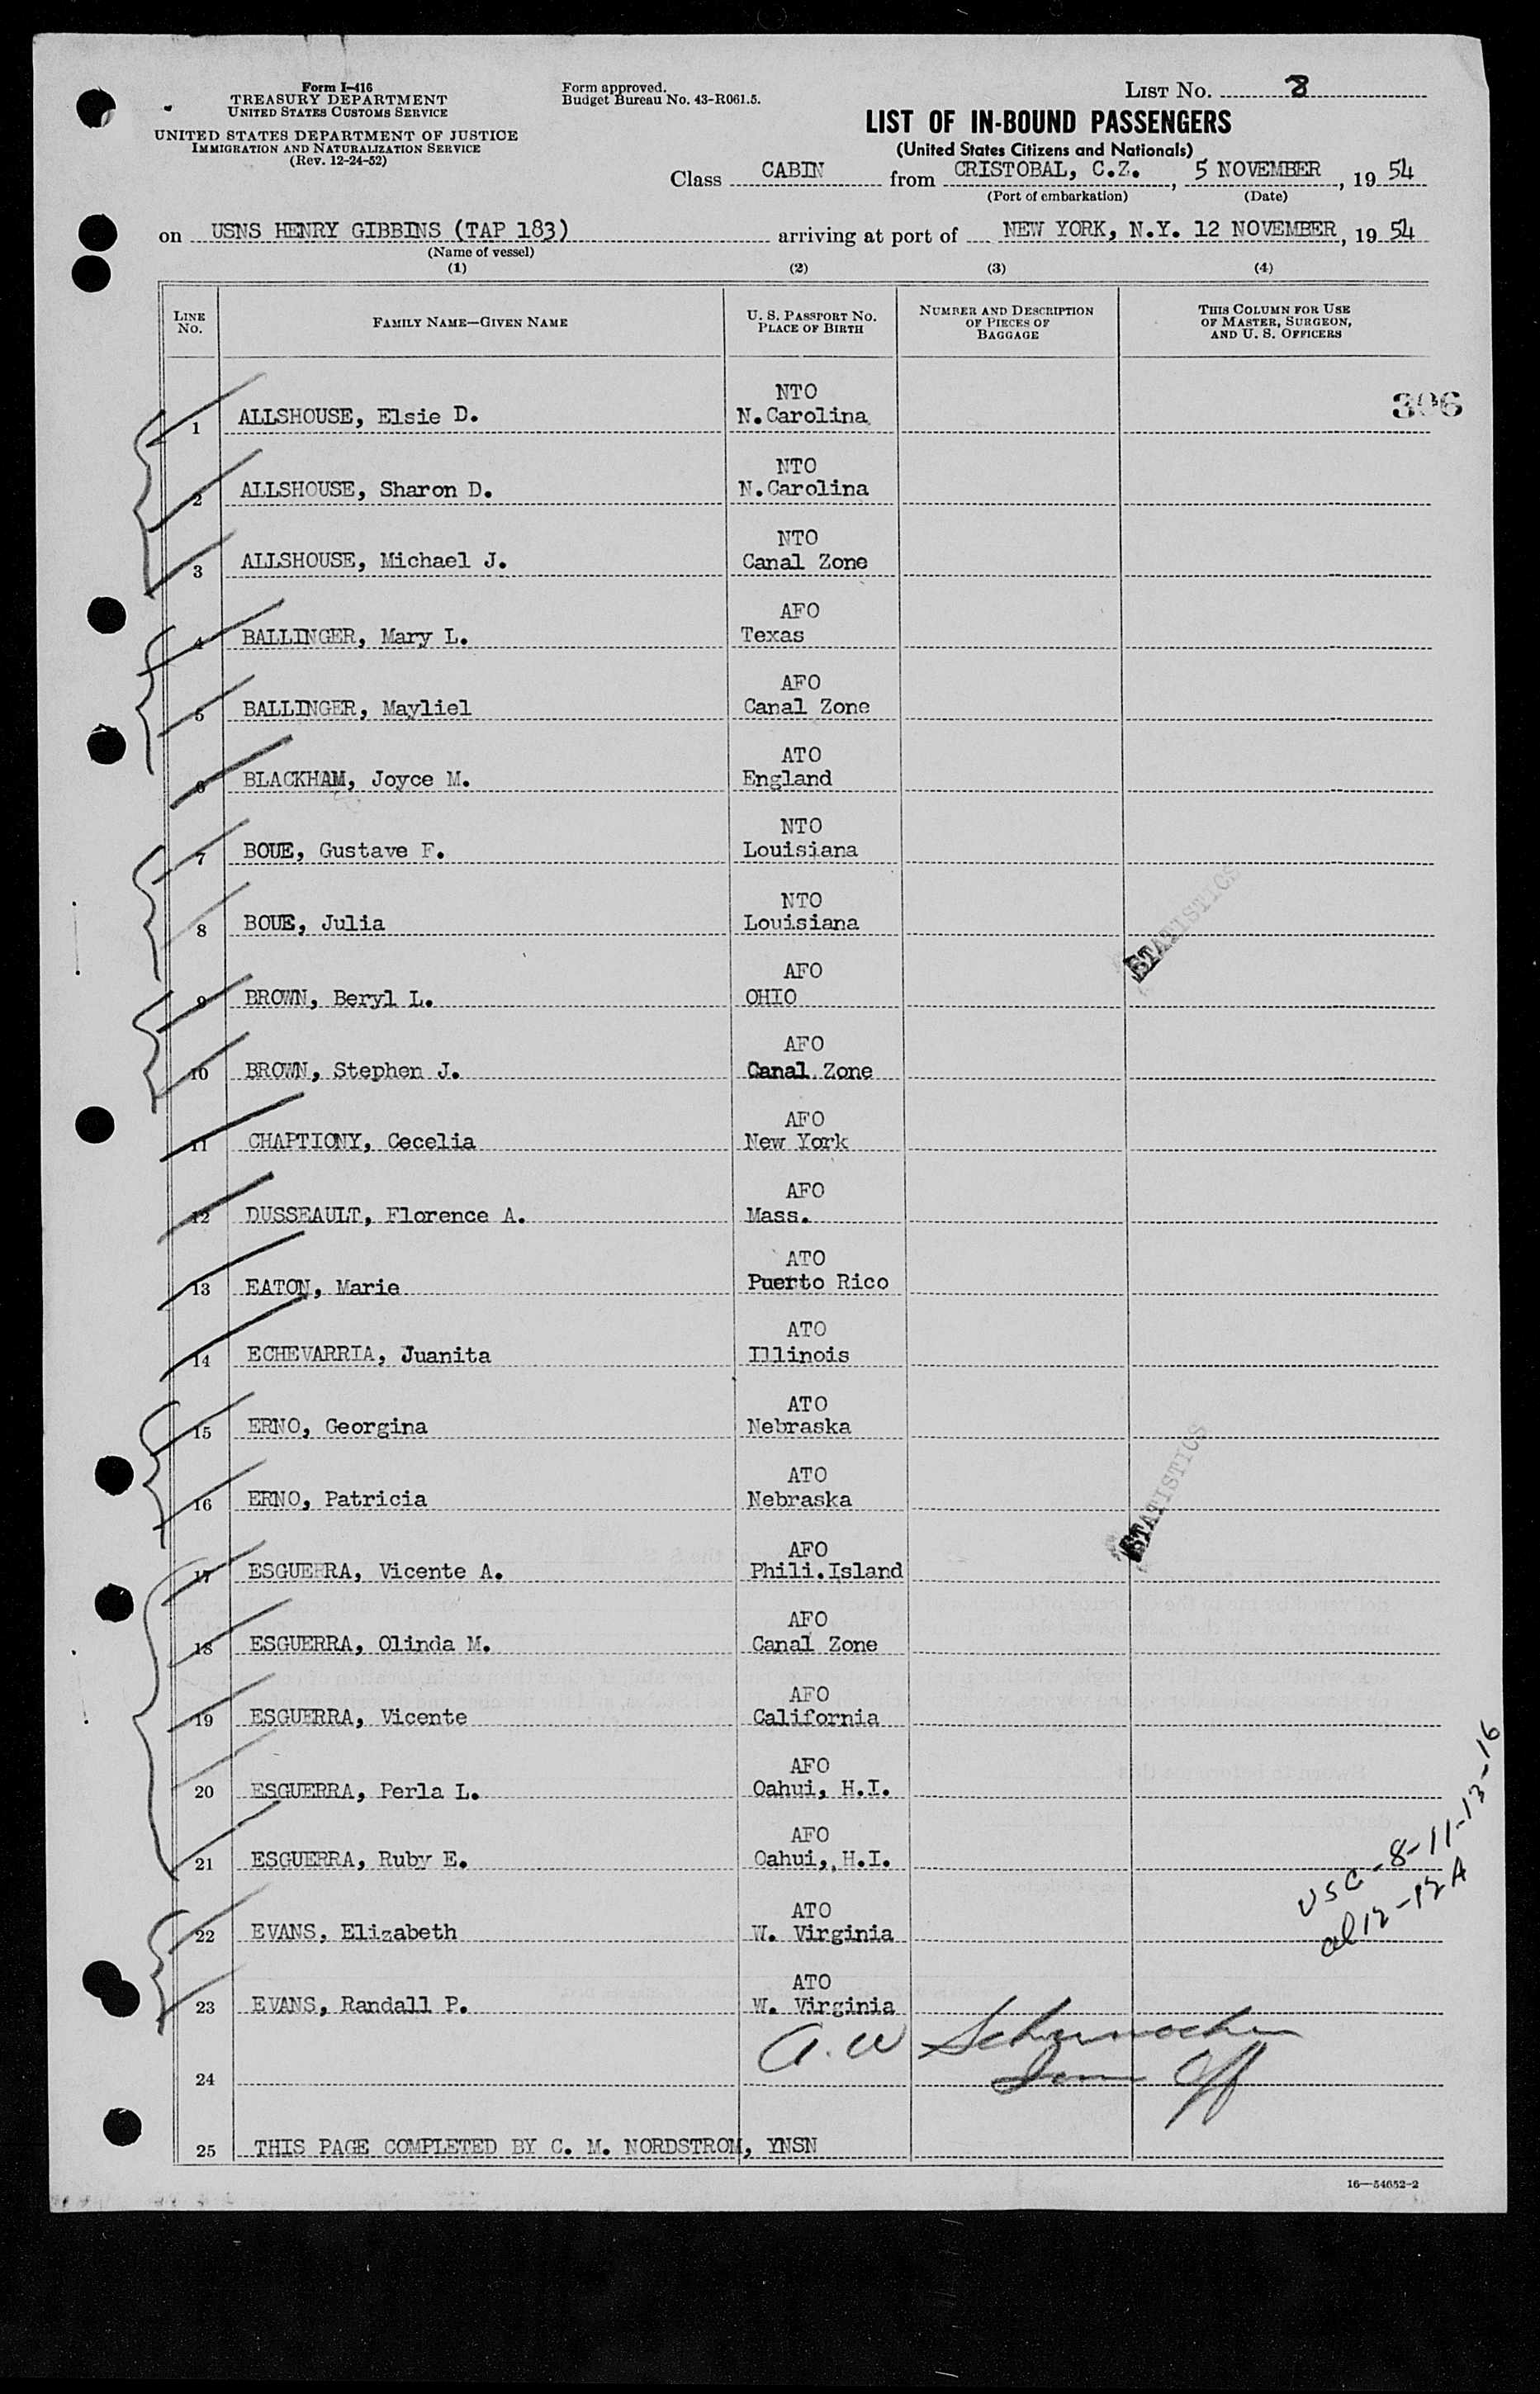 Form I-416
TREASURY DEPARTMENT
UNITED STATES CUSTOMS SERVICE
UNITED STATES DEPARTMENT OF JUSTICE
IMMIGRATION AND NATURALIZATION SERVICE
(Rev. 12-24-52)
Form approved.
Budget Bureau No. 43-R061.5.
LIST No. 8
LIST OF IN-BOUND PASSENGERS
(United States Citizens and Nationals)
Class CABIN from CRISTOBAL, C.Z., 5 NOVEMBER, 1954
(Port of embarkation) (Date)
on USNS HENRY GIBBINS (TAP 183) arriving at port of NEW YORK, N.Y. 12 NOVEMBER, 1954
(Name of vessel)
(1) (2) (3) (4)
LINE No. FAMILY NAME—GIVEN NAME U. S. PASSPORT No. PLACE OF BIRTH NUMBER AND DESCRIPTION OF PIECES OF BAGGAGE THIS COLUMN FOR USE OF MASTER, SURGEON, AND U. S. OFFICERS
306
NTO
1 ALLSHOUSE, Elsie D. N.Carolina
NTO
2 ALLSHOUSE, Sharon D. N.Carolina
NTO
3 ALLSHOUSE, Michael J. Canal Zone
AFO
4 BALLINGER, Mary L. Texas
AFO
5 BALLINGER, Mayliel Canal Zone
ATO
6 BLACKHAM, Joyce M. England
NTO
7 BOUE, Gustave F. Louisiana
NTO
8 BOUE, Julia Louisiana
STATISTICS
AFO
9 BROWN, Beryl L. OHIO
AFO
10 BROWN, Stephen J. Canal Zone
AFO
11 CHAPTIONY, Cecelia New York
AFO
12 DUSSEAULT, Florence A. Mass.
ATO
13 EATON, Marie Puerto Rico
ATO
14 ECHEVARRIA, Juanita Illinois
ATO
15 ERNO, Georgina Nebraska
ATO
16 ERNO, Patricia Nebraska
STATISTICS
AFO
17 ESGUERRA, Vicente A. Phili.Island
AFO
18 ESGUERRA, Olinda M. Canal Zone
AFO
19 ESGUERRA, Vicente California
AFO
20 ESGUERRA, Perla L. Oahui, H.I.
AFO
21 ESGUERRA, Ruby E. Oahui, H.I.
USC-8-11-13-16
al 12-12A
ATO
22 EVANS, Elizabeth W. Virginia
ATO
23 EVANS, Randall P. W. Virginia
A. W Schumacher
Imm Off
24
25 THIS PAGE COMPLETED BY C. M. NORDSTROM, YNSN
16—54652-2